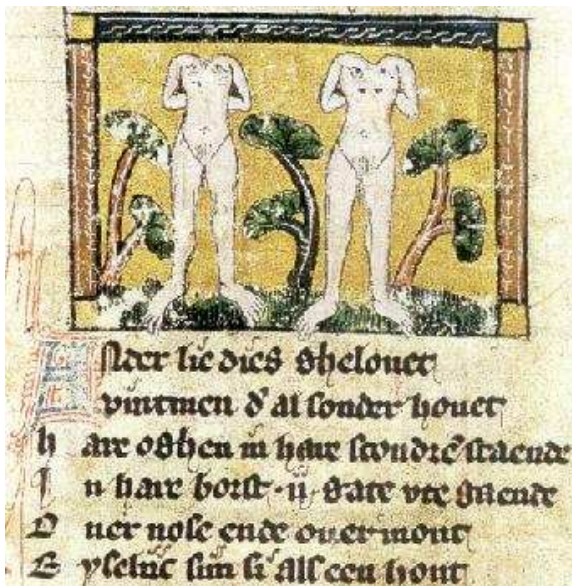 Ander lie dies ghelouet
vintmen d' al sonder houet
hare oghen in hare scoudrē staende
In hare borst .ii. gate vte gaende
Ouer nose ende ouer mont
Eyseliic siin si als een hont